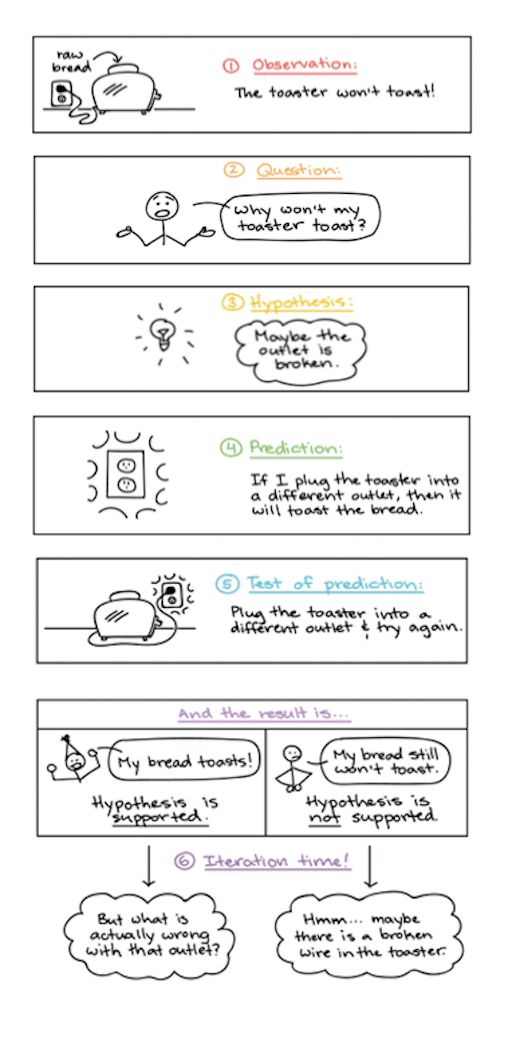 raw
bread
① Observation:
The toaster won't toast!
② Question:
Why won't my
toaster toast?
③ Hypothesis:
Maybe the
outlet is
broken.
④ Prediction:
If I plug the toaster into
a different outlet, then it
will toast the bread.
⑤ Test of prediction:
Plug the toaster into a
different outlet & try again.
And the result is...
My bread toasts!
Hypothesis is
supported.
My bread still
won't toast.
Hypothesis is
not supported.
⑥ Iteration time!
But what is
actually wrong
with that outlet?
Hmm... maybe
there is a broken
wire in the toaster.